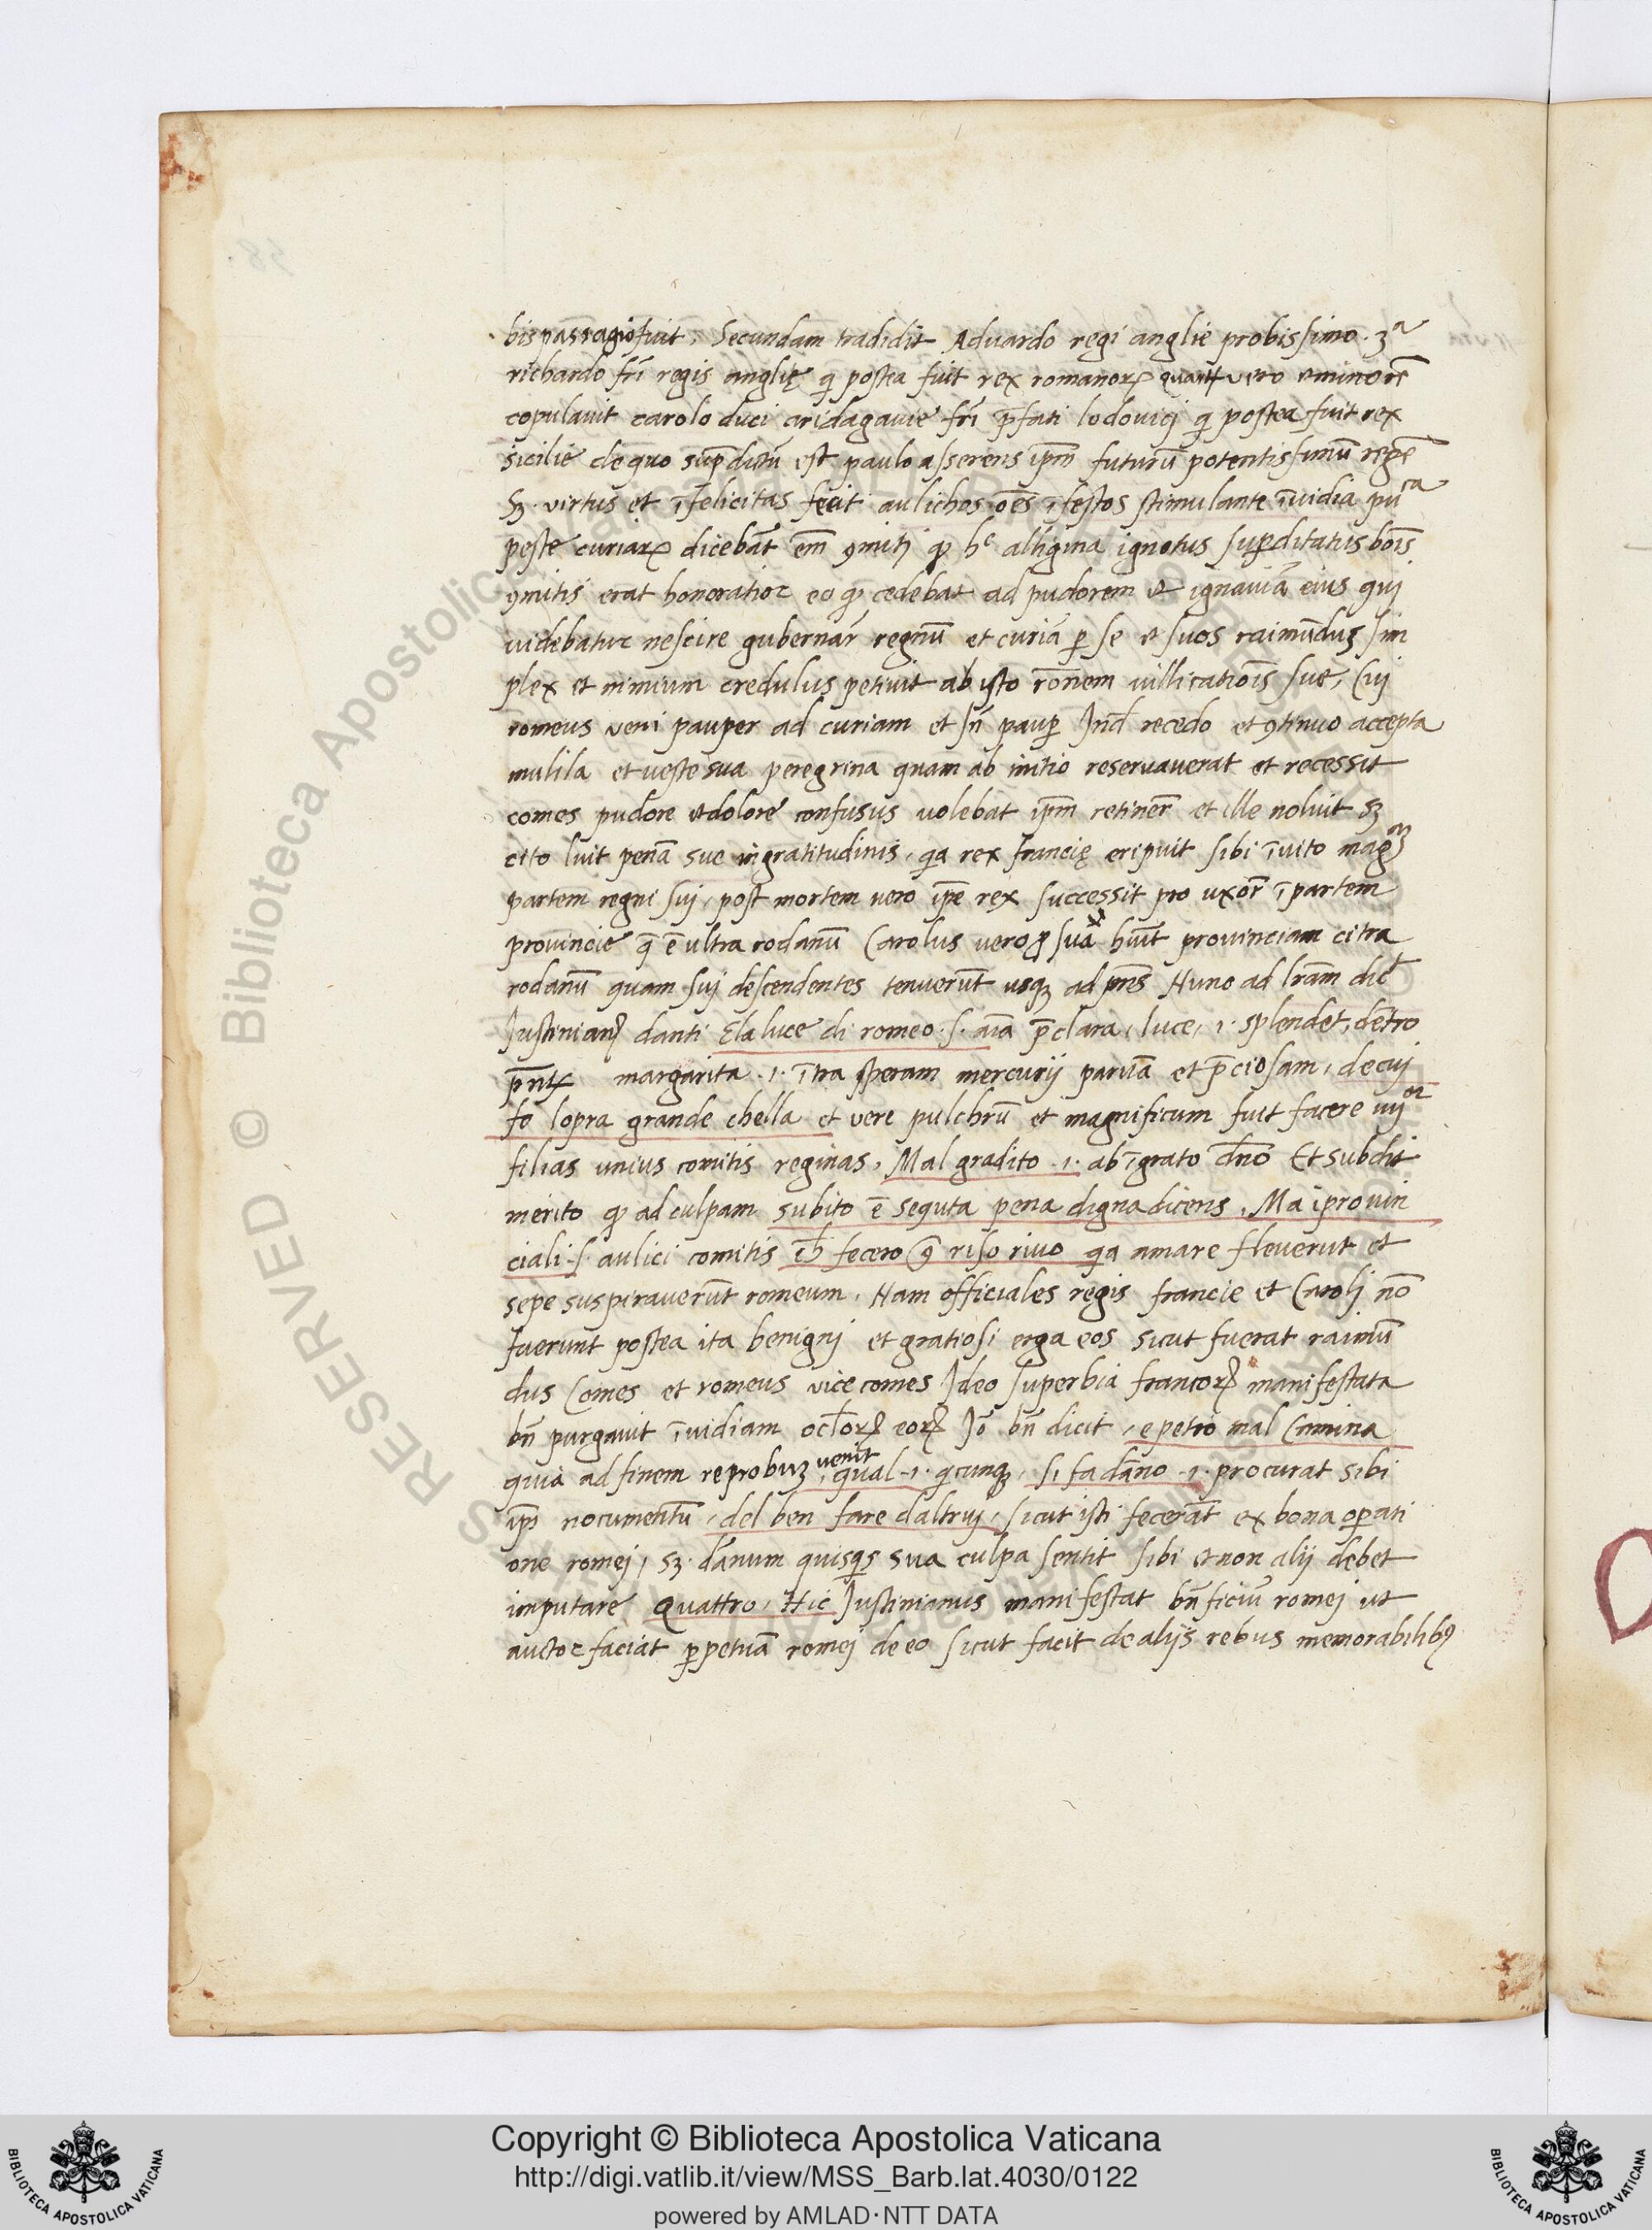 bis passagio fuit, Secundam tradidit Aduardo regi anglie probissimo. 3ª
richardo fr̄i regis anglię q̄ postea fuit rex romanoꝝ quart vero et minorē
copulavit carolo duci andagavie fr̄i p̄fati lodovici q̄ postea fuit rex
sicilie de quo supᵃdictū est paulo asserens ip̄m futurū potentissimū regē
Sꝫ virtus et ī felicitas fecit aulichos oēs īfestos stimulante īvidia puᶜᵃ
peste curiaꝝ dicebāt em̄ ꝯmiti ꝙ hᶜ aligina ignotus suꝑditatus bōis
ꝯmitis erat honoratior eo ꝙ cedebat ad pudorem et ignaviā eius qui
videbatur nescire gubernar̄ regnū et curiā ꝑ se et suos raimūdus sim
plex et nimium credulus petivit ab isto rōnem villicatiōis sue, Cui
romeus veni pauper ad curiam et sn̄ pauꝑ Ind̄ recedo et ꝯtinuo accepta
mulila et veste sua peregrina quam ab initio reservaverat et recessit
comes pudore et dolore confusus volebat ip̄m retiner̄ et ille noluit sꝫ
cito luit penā sue ingratitudinis, qa rex francię eripuit sibi īvito magᵃᵐ
partem regni sui, post mortem vero ip̄e rex successit pro uxor̄ ī partem
provincie q̄ ē ultra rodanū Carolus vero ꝓ sua hūit provinciam citra
rodanū quam sui descendentes tenuerūt usqꝫ ad p̄ns Nunc ad lr̄am dic̄
Justinianꝯ danti E la luce di romeo .s. aīa p̄clara, luce, .i. splendet, dētro
p̄nt margarita .i. ītra speram mercurii parvā et p̄ciosam, de cui
fo lopra grande e bella et vere pulchrū et magnificum fuit facere iiijᵒʳ
filias unius comitis reginas, Mal gradito .i. ab īgrato dn̄o Et subdit
merito ꝙ ad culpam subito ē seguta pena digna dicens, Ma i provin
ciali .s. aulici comitis ch̄ fecero ꝯ riso rivo qa amare fleverūt et
sepe suspiraverūt romeum, Nam officiales regis francie et Caroli nō
fuerunt postea ita benigni et gratiosi erga eos sicut fuerat raimū
dus Comes et romeus vice comes Ideo superbia francoꝝ manifestata
bn̄ purgavit īvidiam octoꝝ eoꝝ Iō bn̄ dicit, e petro mal Camina
quia ad finem reprobuꝫ venit, qual .i. qicunqꝫ, si fa dāno .i. procurat sibi
ip̄i nocumentū, del ben fare daltrui, sicut isti fecerāt ex bona oꝑati
one romei, sꝫ dānum quisqis sua culpa sentit sibi et non alij debet
imputare Quattro, Hic Justinianus manifestat bn̄ficiū romei ut
auctor faciat ꝑpetuā romei de eo sicut facit de alijs rebus memorabilibꝯ
Copyright © Biblioteca Apostolica Vaticana
http://digi.vatlib.it/view/MSS_Barb.lat.4030/0122
powered by AMLAD·NTT DATA